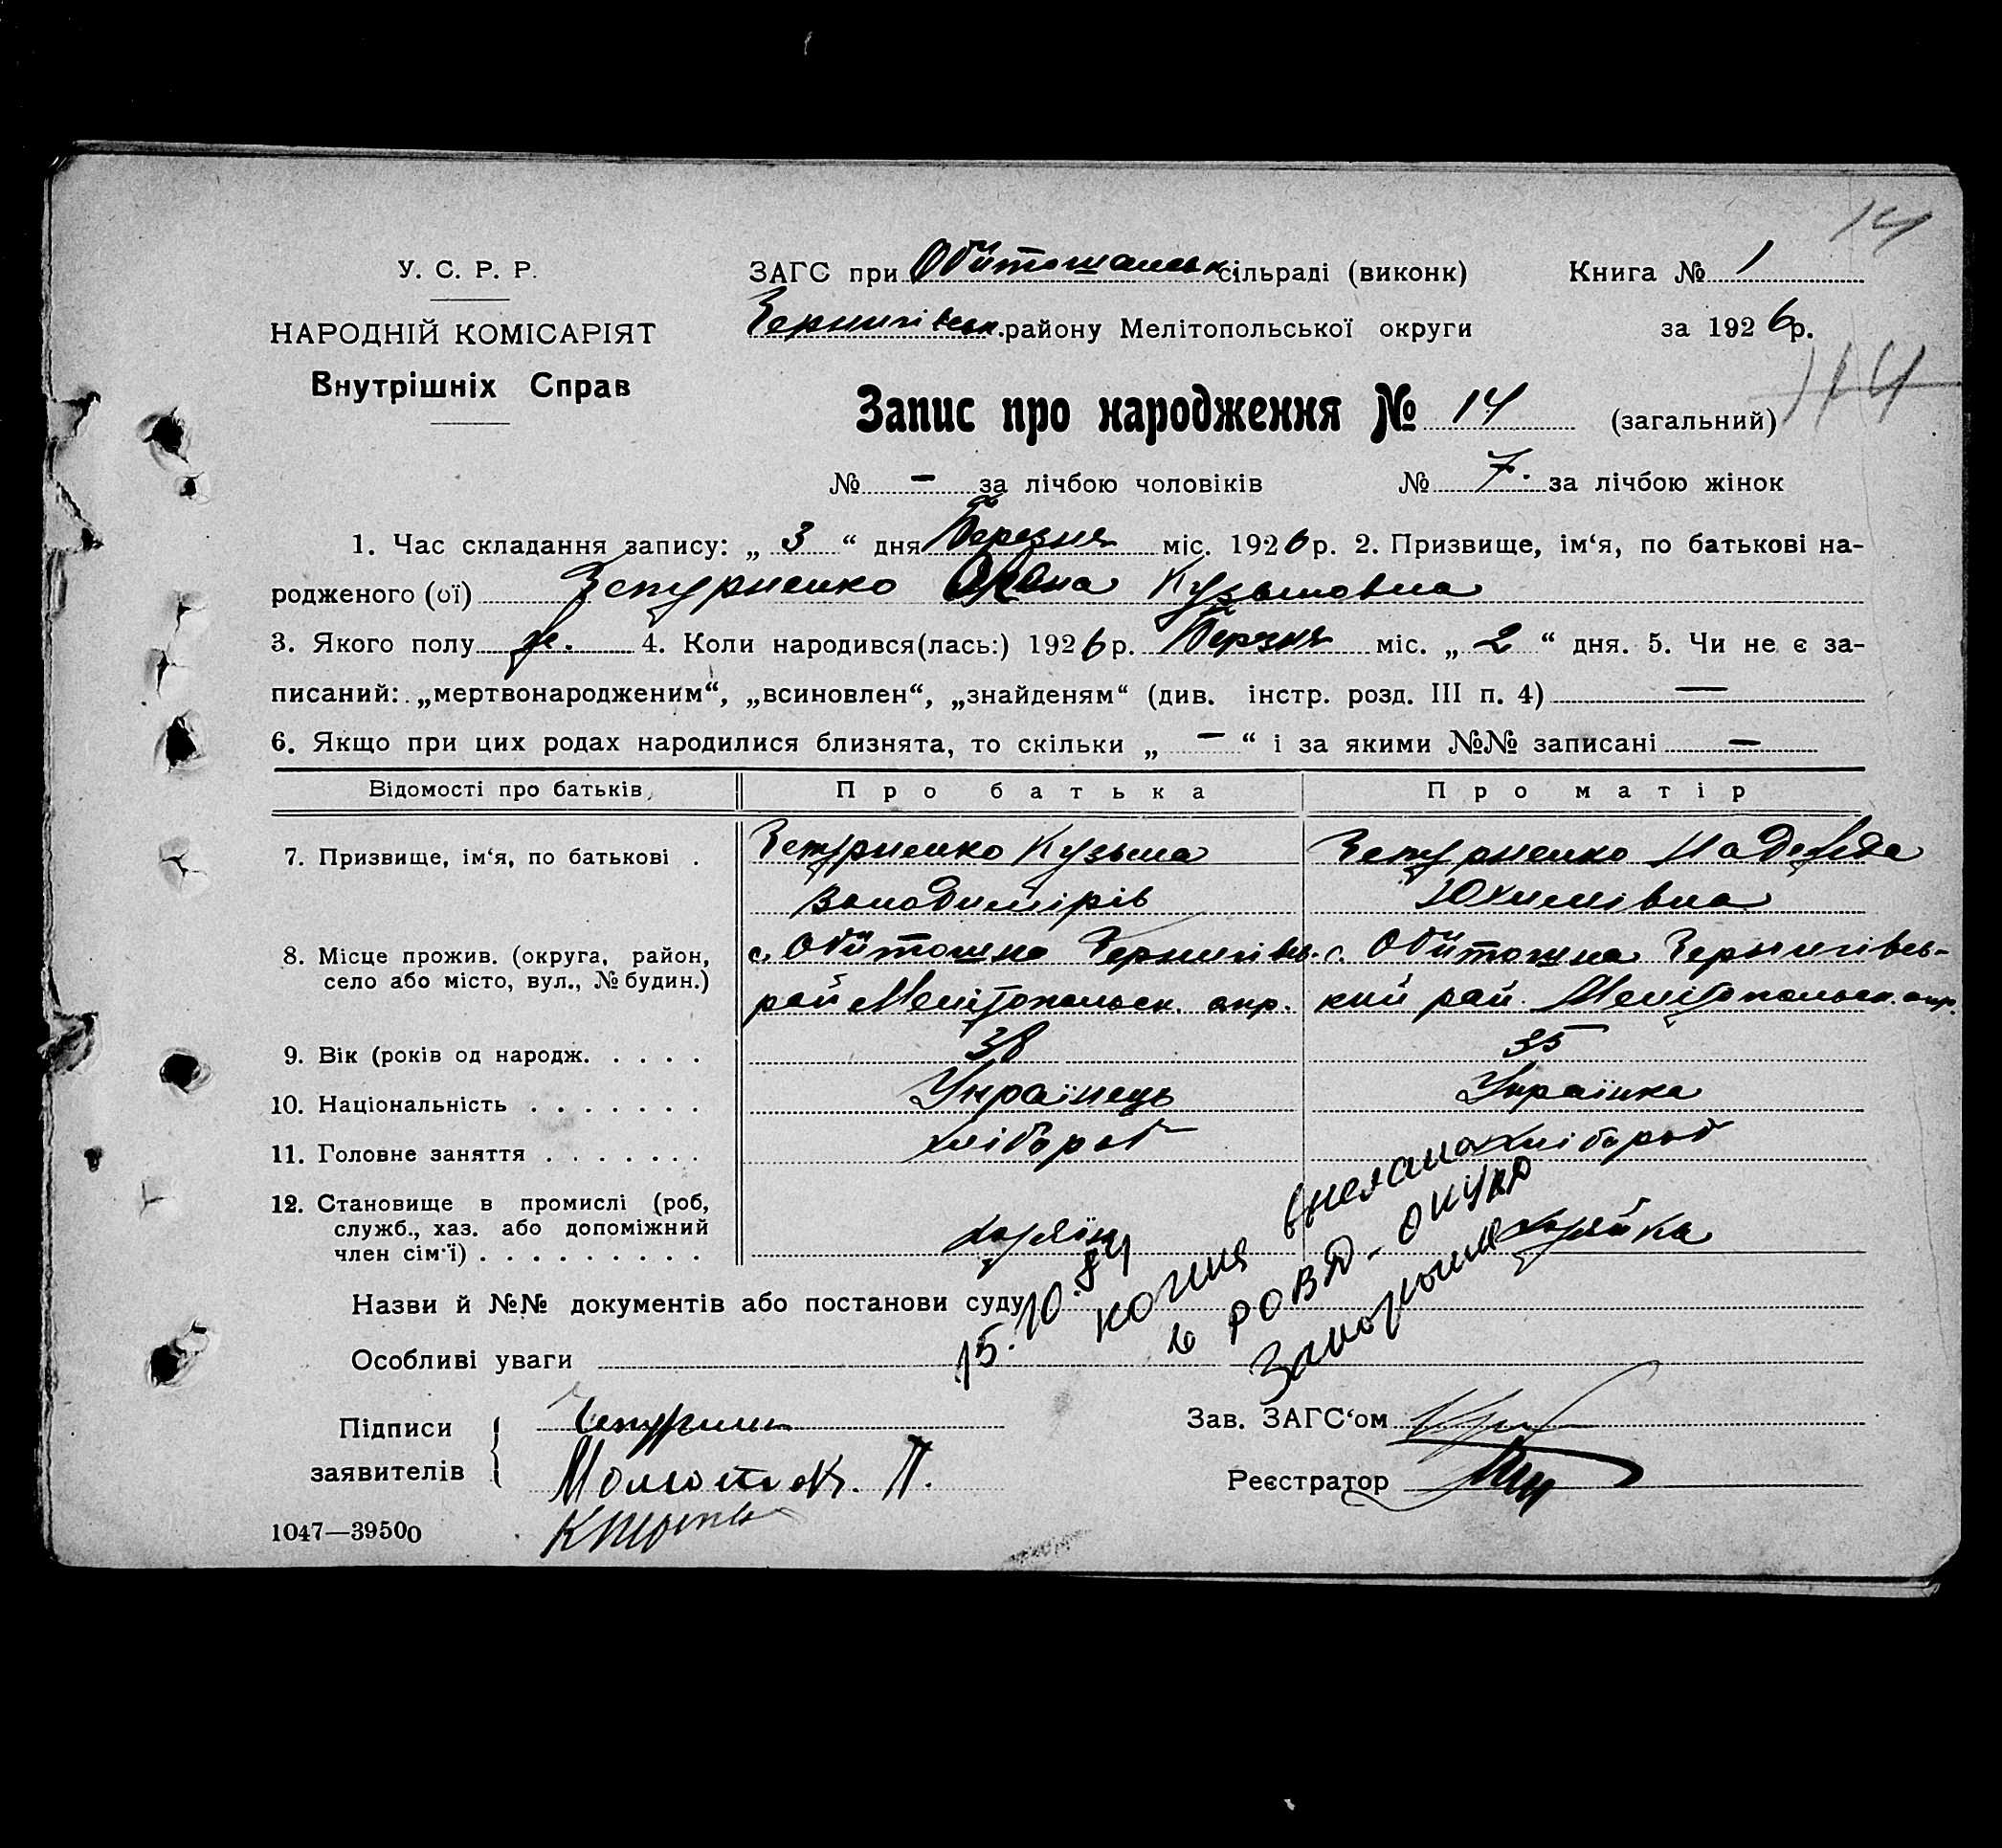 14
У. С. Р. Р.
НАРОДНІЙ КОМІСАРІЯТ
Внутрішніх Справ
ЗАГС при Обиточанськ. сільраді (виконк) Книга № 1
Чернигівськ. району Мелітопольської округи за 1926 р.
114
Запис про народження № 14 (загальний)
№ – за лічбою чоловіків № 7. за лічбою жінок
1. Час складання запису: „ 3 “ дня Березня міс. 1926 р. 2. Призвище, ім‘я, по батькові на-
родженого (ої) Чепурненко Кузьмовна
3. Якого полу ж. 4. Коли народився(лась:) 1926 р. Березня міс. „ 2 “ дня. 5. Чи не є за-
писаний: „мертвонародженим“, „всиновлен“, „знайденям“ (див. інстр. розд. III п. 4) —
6. Якщо при цих родах народилися близнята, то скільки „ – “ і за якими №№ записані –
Відомості про батьків, Про батька Про матір
7. Призвище, ім‘я, по батькові . Чепурненко Кузьма Чепурненко Надежда
Володимірів Юхимівна
8. Місце прожив. (округа, район, с. Обиточна Чернигівсь. с. Обиточна Чернигівсь-
село або місто, вул., № будин.) рай Мелітопольськ. окр. кий рай. Мелітопольськ. окр.
9. Вік (років од народж. . . . . 38 35
10. Національність . . . . . . . Українець Українка
11. Головне заняття . . . . . . . хлібороб хлібороб
12. Становище в промислі (роб,
служб., хаз. або допоміжний хазяїн хазяйка
член сім‘ї) . . . . . . . . .
Назви й №№ документів або постанови суду
Особливі уваги
15.10.84 копия выслана
в РОВД
Підписи
заявителів
Зав. ЗАГС‘ом
Реєстратор
1047—39500